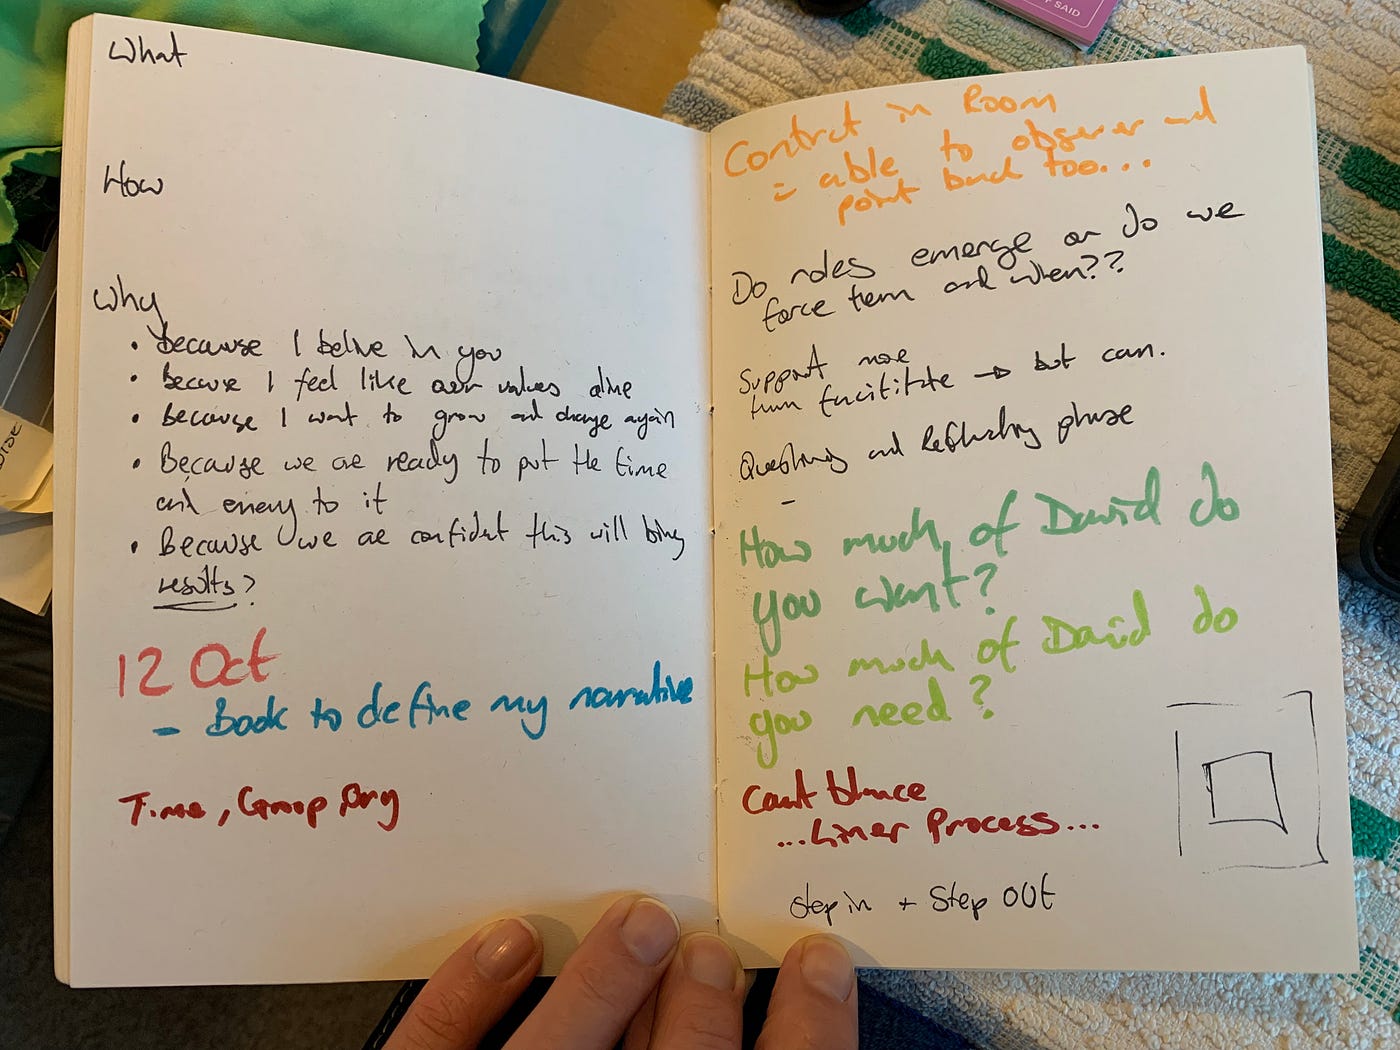 What
How
Why
• because I belive in you
• Because I feel like our values alive
• because I want to grow and change again
• Because we are ready to put the time
and energy to it
• Because we are confident this will bring
results?
12 Oct
- Book to define my narrative
Time, Group, Org
Contract in Room
= able to observer and
point back too...
Do roles emerge or do we
force them and when??
Support more
than facilitate → but can.
Questioning and Reflecting phase
-
How much of David do
you want?
How much of David do
you need?
Cant blance
...Liner Process...
Step in + Step OUT
SAID